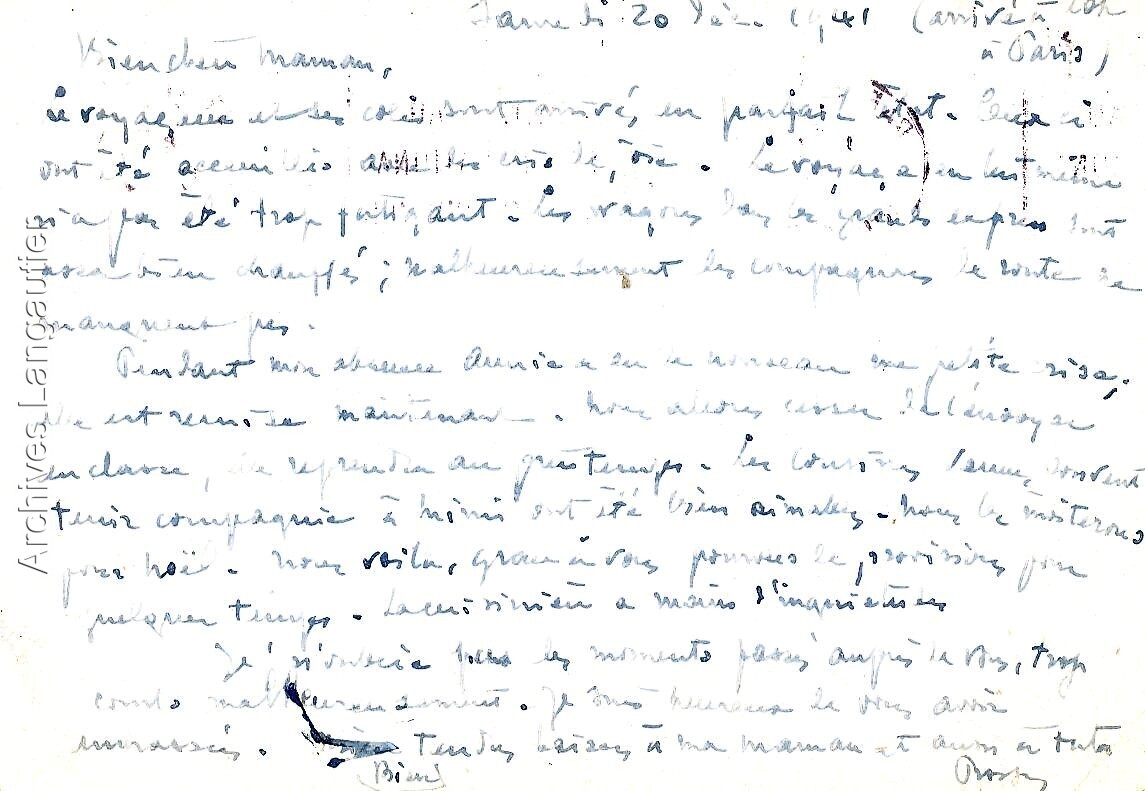 Samedi 20 Déc. 1941 (arrivé à 10h
à Paris)
Bien chère maman,
Le voyageur et ses colis sont arrivés en parfait état. Ceux ci
ont été accueillis avec des cris de joie. Le voyage en lui même
n'a pas été trop fatigant. Les wagons dans les grands express sont
assez bien chauffés ; malheureusement les compagnons de route ne
manquent pas.
Pendant mon absence Annie a eu de nouveau une petite crise,
elle est remise maintenant. Nous allons cesser de l'envoyer
en classe, elle reprendra au printemps. Les cousines venues souvent
tenir compagnie à Mimi ont été bien aimables. Nous les inviterons
pour Noël. Nous voilà, grâce à vous pourvus de provisions pour
quelque temps. La cuisinière a moins d'inquiétudes
Je n'oublie pas les moments passés auprès de vous, trop
courts malheureusement. Je suis heureux de vous avoir
embrassés. tendres baisers à ma maman et aussi à
(Bien)